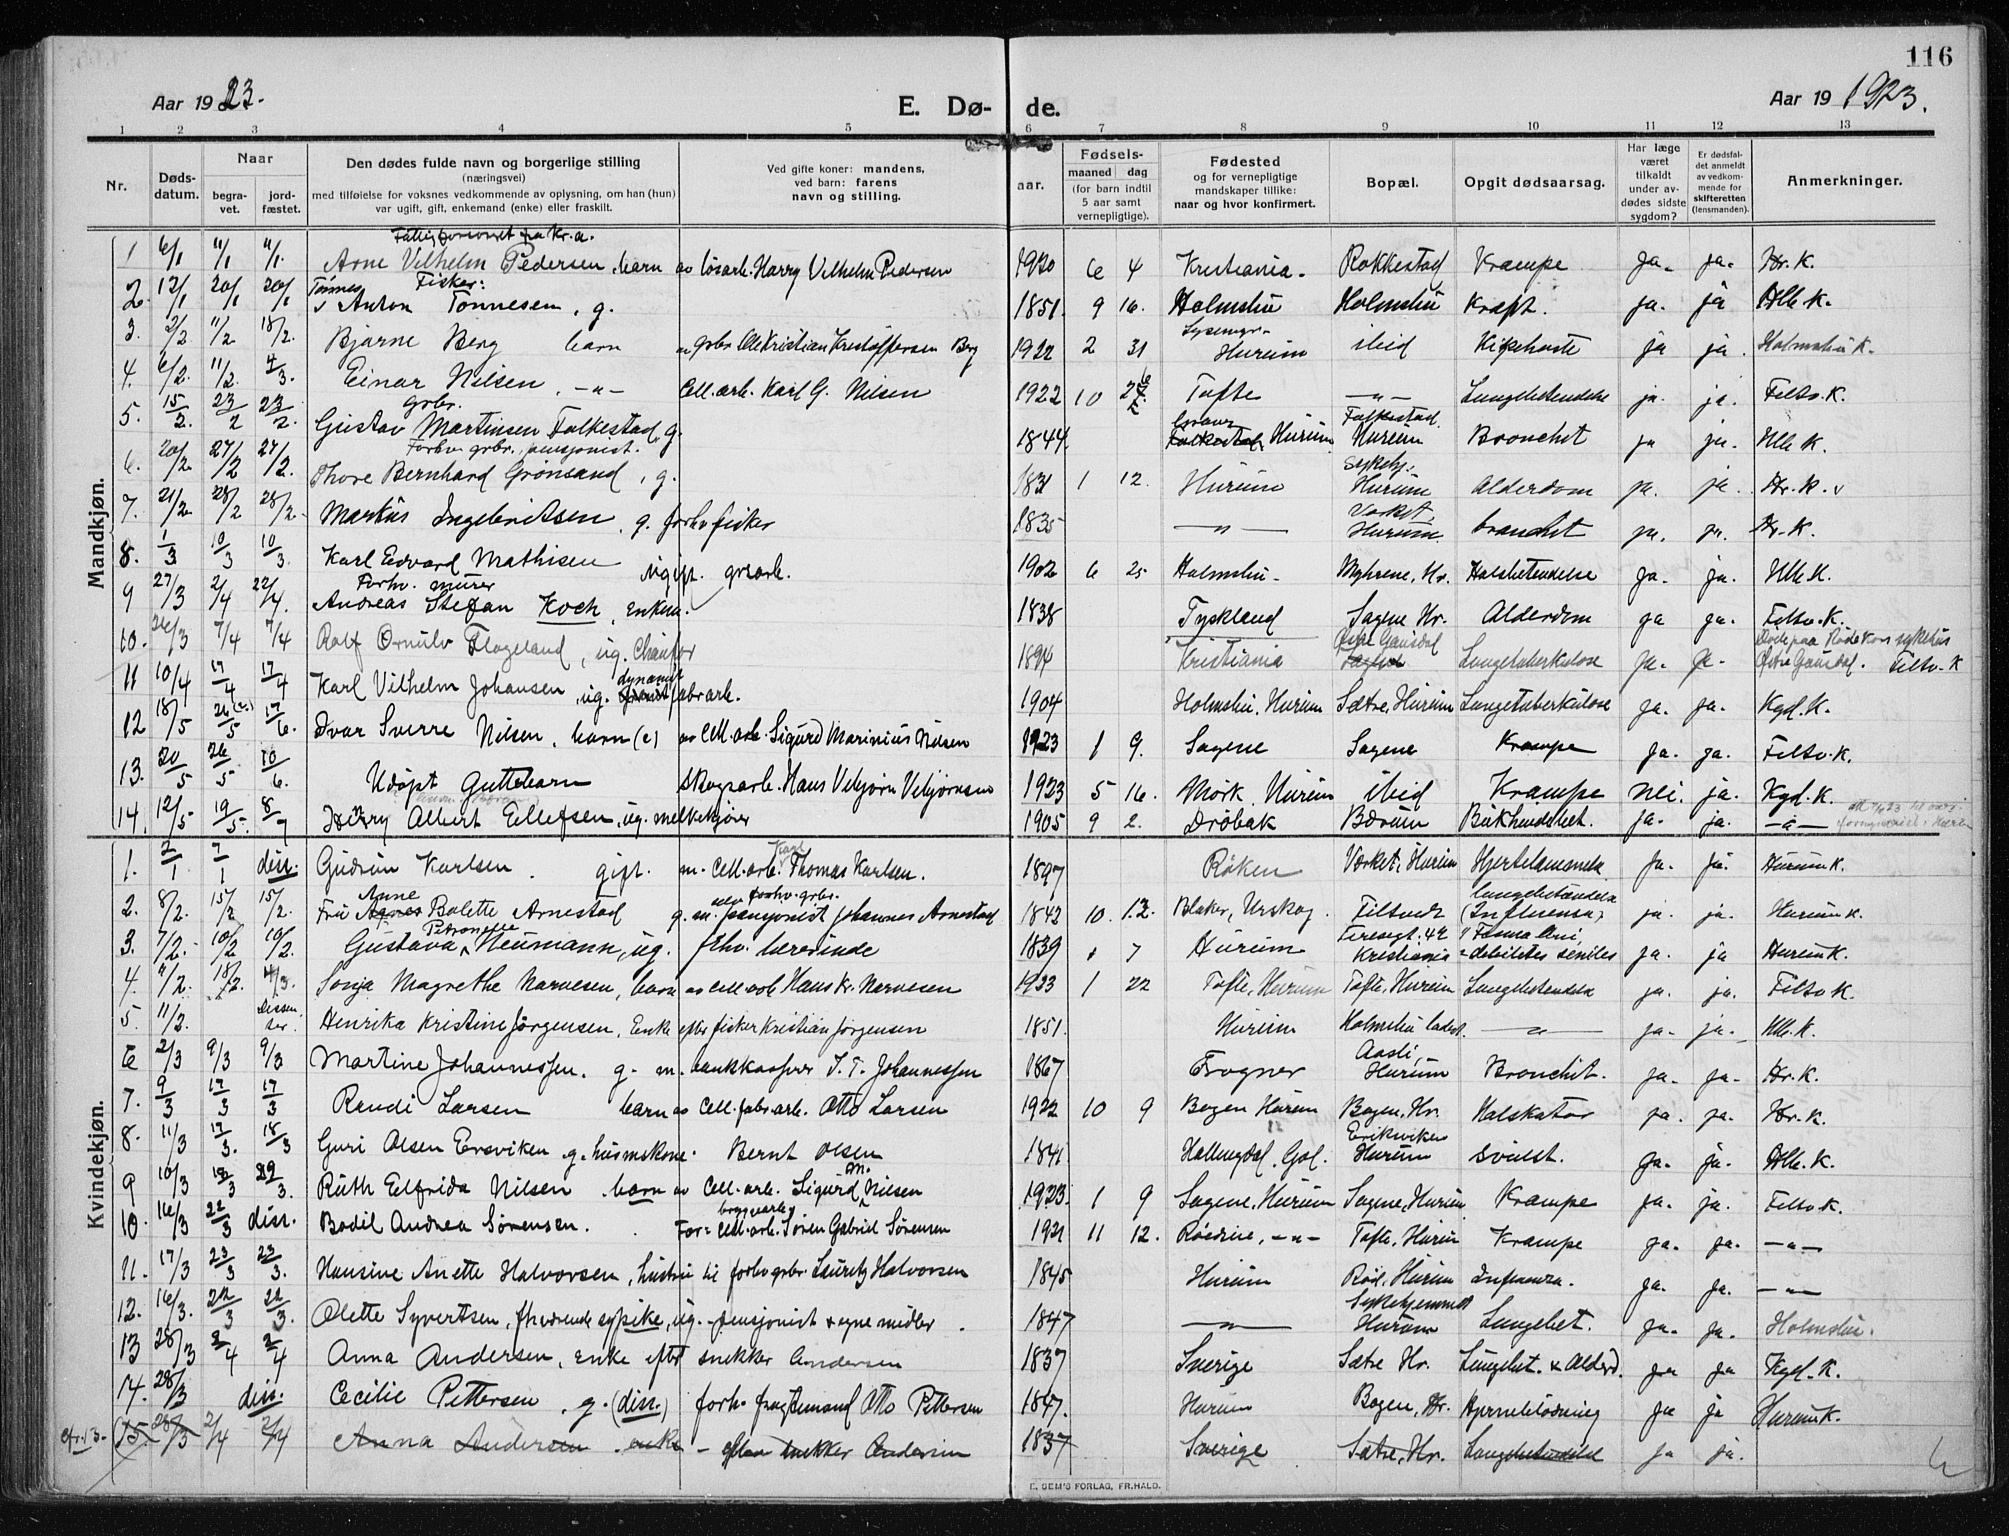 116
Aar 1923. E. Dø- de. Aar 19 1923.
1 2 3 4 5 6 7 8 9 10 11 12 13
Nr. Døds-datum. Naar begra-vet. jord-fæstet. Den dødes fulde navn og borgerlige stilling (næringsvei) med tilføielse for voksnes vedkommende av oplysning, om han (hun) var ugift, gift, enkemand (enke) eller fraskilt. Ved gifte koner: mandens, ved barn: farens navn og stilling. aar. Fødsels- maaned dag (for barn indtil 5 aar samt vernepligtige). Fødested og for vernepligtige mandskaper tillike: naar og hvor konfirmert. Bopæl. Opgit dødsaarsag. Har læge været tilkaldt under av-dødes sidste sygdom? Er dødsfal-det anmeldt av vedkom-mende for skifteretten (lensmanden). Anmerkninger.
Mandkjøn.
1 6/1 11/1 11/1 Arne Vilhelm Pedersen, barn av løsarb. Harry Vilhelm Pedersen 1920 6 4 Kristiania. Rakkestad Krampe ja. ja. Hr. K.
Fisker:
2. 12/1 20/1 20/1 Tønnes Anton Tønnesen, g. 1851. 9 16. Holmsbu Holmsbu Kræft. ja. ja Hlb. K.
3. 2/2 11/2 18/2. Bjarne Berg barn av grbr. Ole Kristian Kristoffersen Berg 1922 2 31 Hurum ibid Kikhoste ja ja. Holmsbu K.
4. 6/2. 11/2. 4/3. Einar Nilsen, -"- Cell. arb. Karl G. Nilsen 1922 10 Tofte -"- Lungebetendelse ja. ja. Filtv. K.
grbr.
5. 15/2. 23/2 23/2. Gustav Martinsen Falkestad, g. 1844. Hurum Falkestad Hurum Bronchit ja ja. Hlb K.
Forhv. grbr., pensjonist.
6. 20/2 27/2 27/2. Thore Bernhard Grønsand, g. 1831 1 12. Hurum Sykehj. Hurum Alderdom ja. ja. Hr. K.
7. 21/2. 28/2 28/2. Markus Ingebritsen, g. forhv fisker 1835 -"- Verket, Hurum bronchit ja. ja. Hr. K.
8. 1/3 10/3 10/3. Karl Edvard Mathisen ugift. grvarb. 1902 6 25 Holmsbu. Myhrene, Hr. Halsbetendelse ja. ja. Hlb. K.
Forhv. murer
9 27/3 2/4 22/4. Andreas Stefan Koch, enkem. 1838 Tyskland Sagene Hr. Alderdom ja ja. Filtv. K.
10. 26/3 7/4 7/4 Rolf Ørnulv Flageland, ug. Chaufør 1894 Kristiania Østre Gausdal Lungetuberkulose ja. ja. Døde paa Røde Kors sykehus Østre Gausdal. Filtv. K
11 10/4 17/4 17/4 Karl Vilhelm Johansen, ug. dynamit fabr arb. 1904 Holmsbu, Hurum Sætre, Hurum Lungetuberkulose ja. ja. Kgd. K.
12 18/5 26/5 17/6. Ivar Sverre Nilsen, barn (e) av Cell. arb. Sigurd Marinius Nilsen 1923 1 9. Sagene Sagene Krampe ja. ja. Filtv. K.
13. 20/5 26/5 10/6. Udøpt Guttebarn Skogsarb. Hans Vebjørn Vebjørnsen 1923 5 16. Mørk, Hurum ibid Krampe Nei. ja. Kgd. K.
14. 12/5 19/5. 8/7 Harry Albert Ellefsen, ug. melkekjører 1905 9 2. Drøbak Bærum Bukhindebet. ja. ja. -"-
Kvindekjøn.
1. 2/1 7/1 diss. Gudrun Karlsen. gift. m. Cell. arb. Karl Thomas Karlsen. 1897 Røken Verket, Hurum Hjertelammelse ja. ja. Hurum K.
2. 8/2. 15/2 15/2. Fru Anne Bolette Arnestad g. m. forhv. grbr. pensjonist Johannes Arnestad 1842 10. 12. Blaker, Urskog. Filtvedt Lungebetændelse (Influensa) ja. ja. Hurum K.
3. 7/2. 10/2 10/2. Gustava Petronelle Neumann, ug. fhv. lærerinde 1839 7 Hurum Teresegt. 42 Kristiania debilitas seniles ja. ja Hurum K.
4. 18/2. 4/3. Sonja Magrethe Narvesen, barn av Cell. arb Hans Kr. Narvesen 1923 1 22 Tofte, Hurum Tofte, Hurum Lungebetendelse ja. ja. Filtv K.
5. 11/2. Dissenter. Henrika Kristine Jørgensen, Enke efter fisker Kristian Jørgensen 1851. Hurum Holmsbu ladest. -"- ja. ja. Hlb. K.
6 2/3 9/3 9/3 Martine Johannessen. g. m. bankkasserer J. T. Johannessen 1867 Frogner Aasli, Hurum Bronchit. ja. ja. Hr. K.
7. 9/3 17/3 17/3 Randi Larsen barn av Cell. fabr arb. Otto Larsen 1922 10 9 Bogen Hurum Bogen, Hr. Halskatar ja. ja. Hr. K.
8. 11/3 17/3. 18/3 Guri Olsen Ersviken g. husmskone. Bernt Olsen 1841 Hallingdal, Gol. Erikviken Hurum svulst. ja. ja. Hlb. K.
9 10/3 18/3 29/3. Ruth Elfrida Nilsen barn av Cell. arb. Sigurd M. Nilsen 1923. 1 9 Sagene, Hurum Sagene, Hurum Krampe ja. ja. Filtv K.
10. 16/3 22/3 diss. Bodil Andrea Sørensen. Far = Cell. arb. Søren Gabriel Sørensen 1921 11 12. Rødtne, -"- Tofte, Hurum Krampe ja. ja. -"-
11. 17/3 23/3 23/3. Hansine Anette Halvorsen, hustru til forhv grbr. Lauritz Halvorsen 1845 Hurum Rød, Hurum Influensa. ja. ja. -"-
12. 16/3. 22/3 22/3. Olette Syvertsen, fhværende sypike, ug. - pensjonist egne midler. 1847 -"- Sykehjemmet Hurum Lungebet. ja. ja. Holmsbu.
13 28/3 2/4 2/4 Anna Andersen, enke efter snekker Andersen 1837 Sverige Sætre Hr. Lungebet. & Alderd. ja ja Kgd. K.
14. 28/3 diss. Cecilie Pettersen, g. (diss.) forh. fragtemand Otto Pettersen 1847. Hurum Bogen, Hr. Hjerneblødning ja ja Hurum K.
cfr. 13. (15. 28/3 2/4 2/4 Anna Andersen enke - efter snekker Andersen 1837 Sverige Sætre, Hr. Lungebetendelse ja ja.
E. SEM'S FORLAG, FR.HALD.